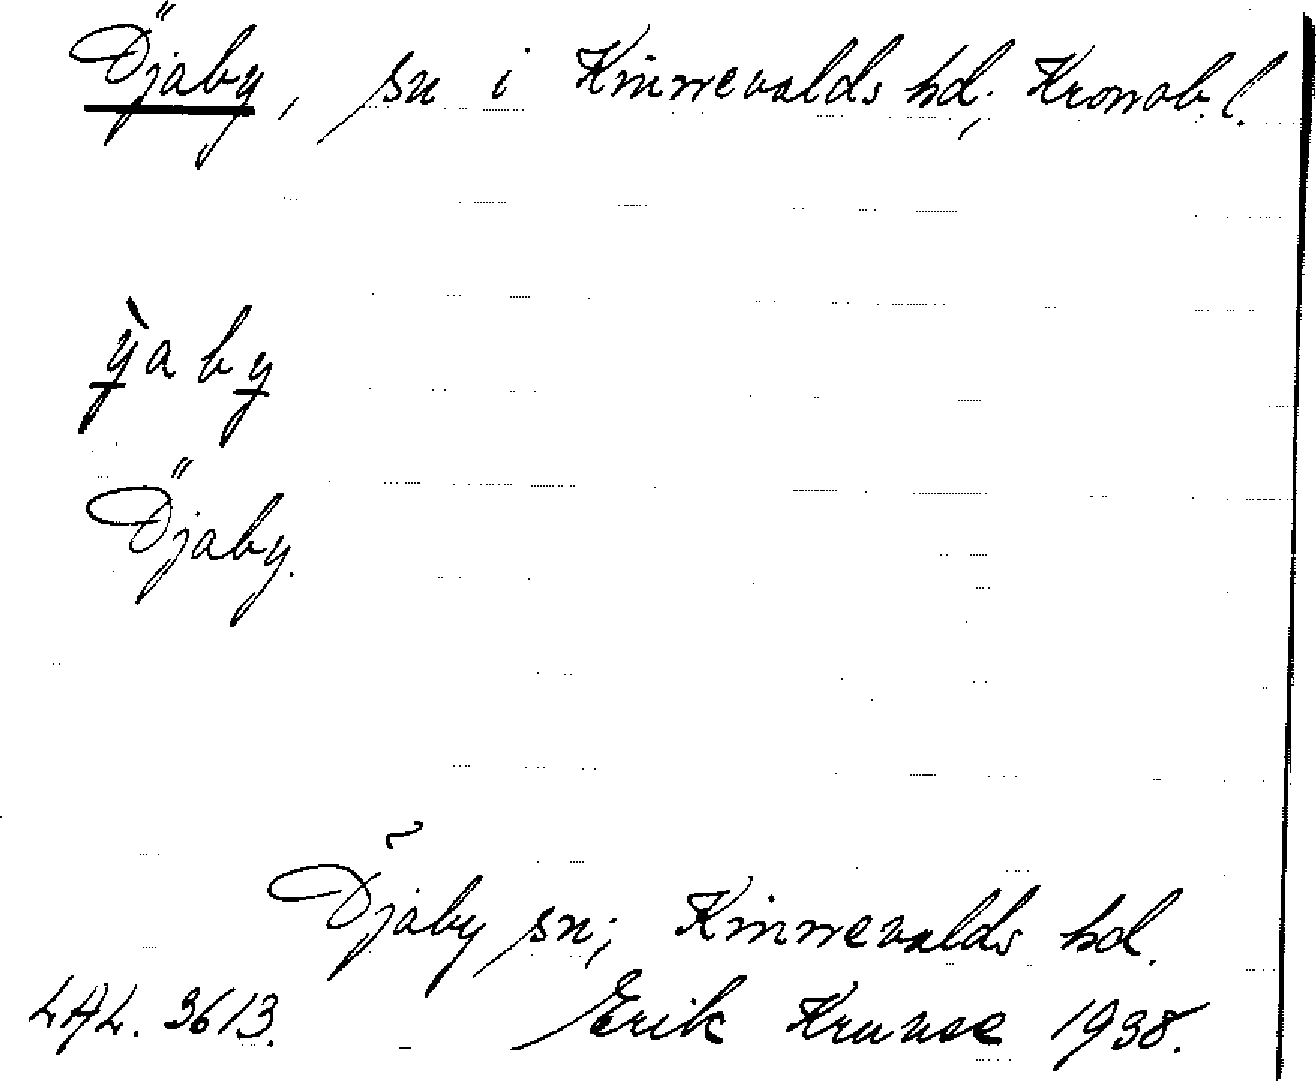 Öjaby, sn i Kinnevalds hd, Kronob. l.
ỳ̱ a b y̱
Öjaby.
Öjaby sn; Kinnevalds hd.
LAL. 3613. Erik Kruuse 1938.